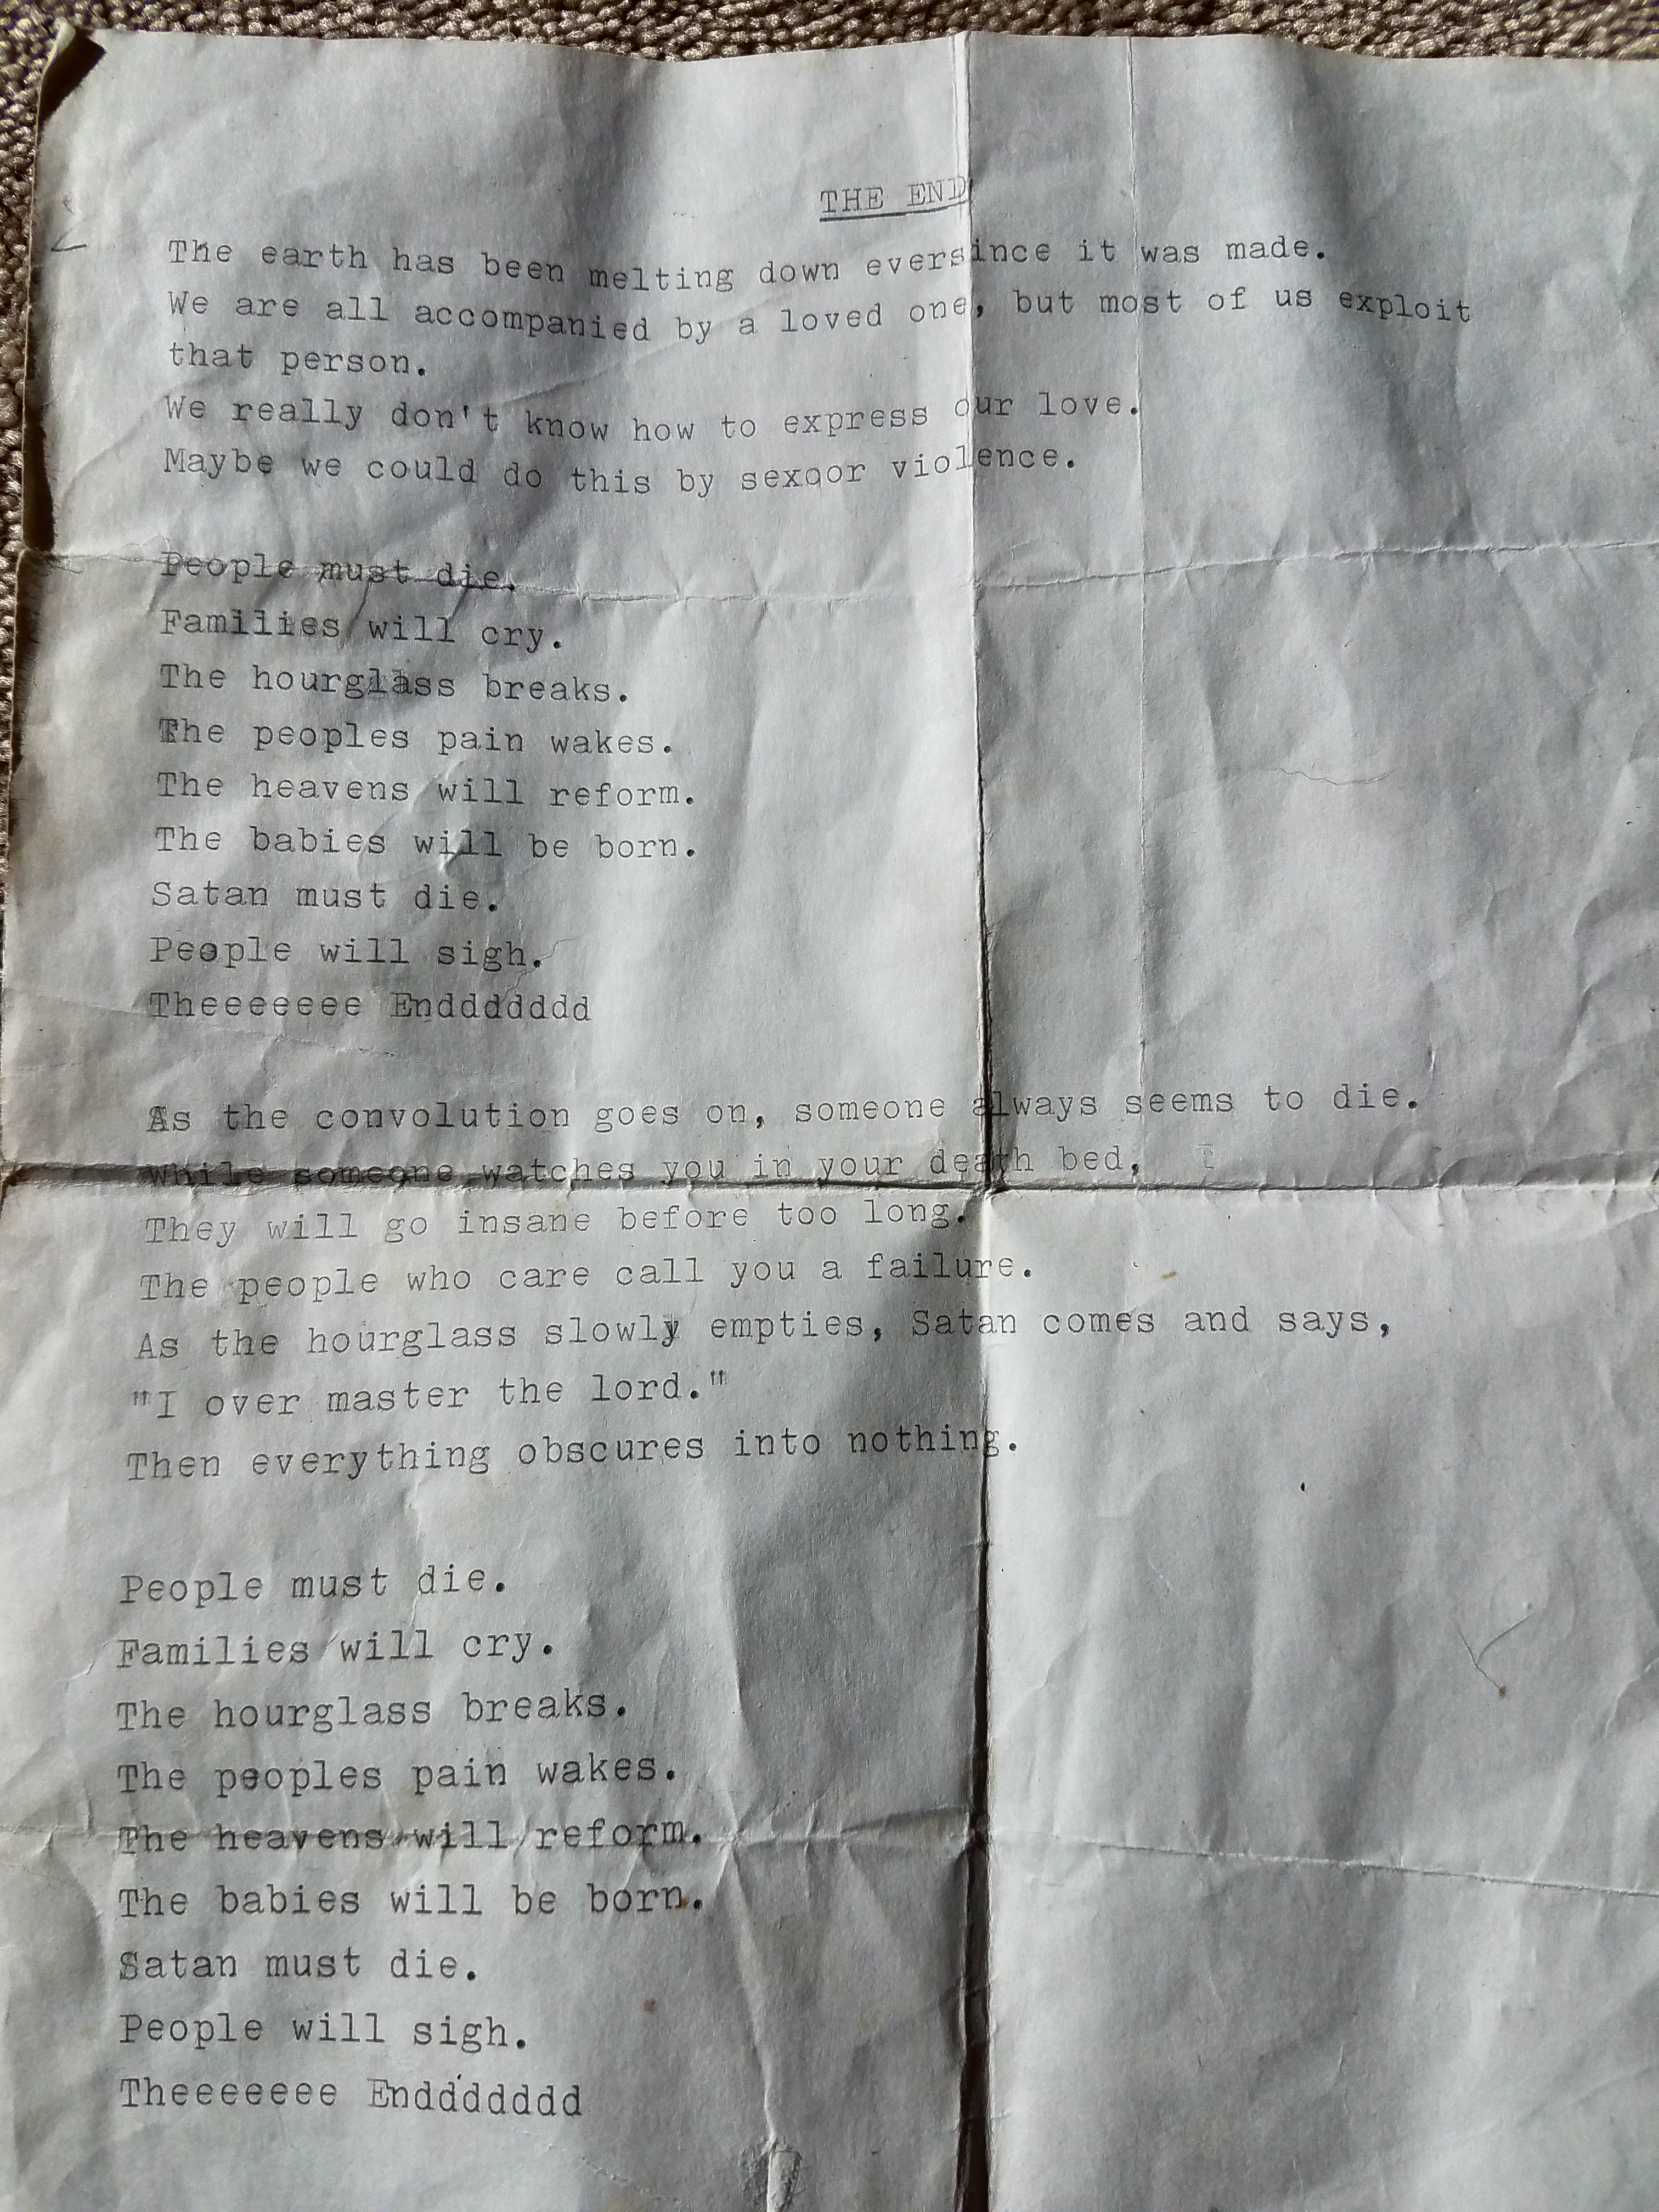 THE END
The earth has been melting down eversince it was made.
We are all accompanied by a loved one, but most of us exploit
that person.
We really don't know how to express our love.
Maybe we could do this by sexqor violence.
People must die.
Families will cry.
The hourglass breaks.
The peoples pain wakes.
The heavens will reform.
The babies will be born.
Satan must die.
People will sigh.
Theeeeeee Enddddddd
As the convolution goes on, someone always seems to die.
While someone watches you in your death bed, T
They will go insane before too long.
The people who care call you a failure.
As the hourglass slowly empties, Satan comes and says,
"I over master the lord."
Then everything obscures into nothing.
People must die.
Families will cry.
The hourglass breaks.
The peoples pain wakes.
The heavens will reform.
The babies will be born.
Satan must die.
People will sigh.
Theeeeeee Enddddddd